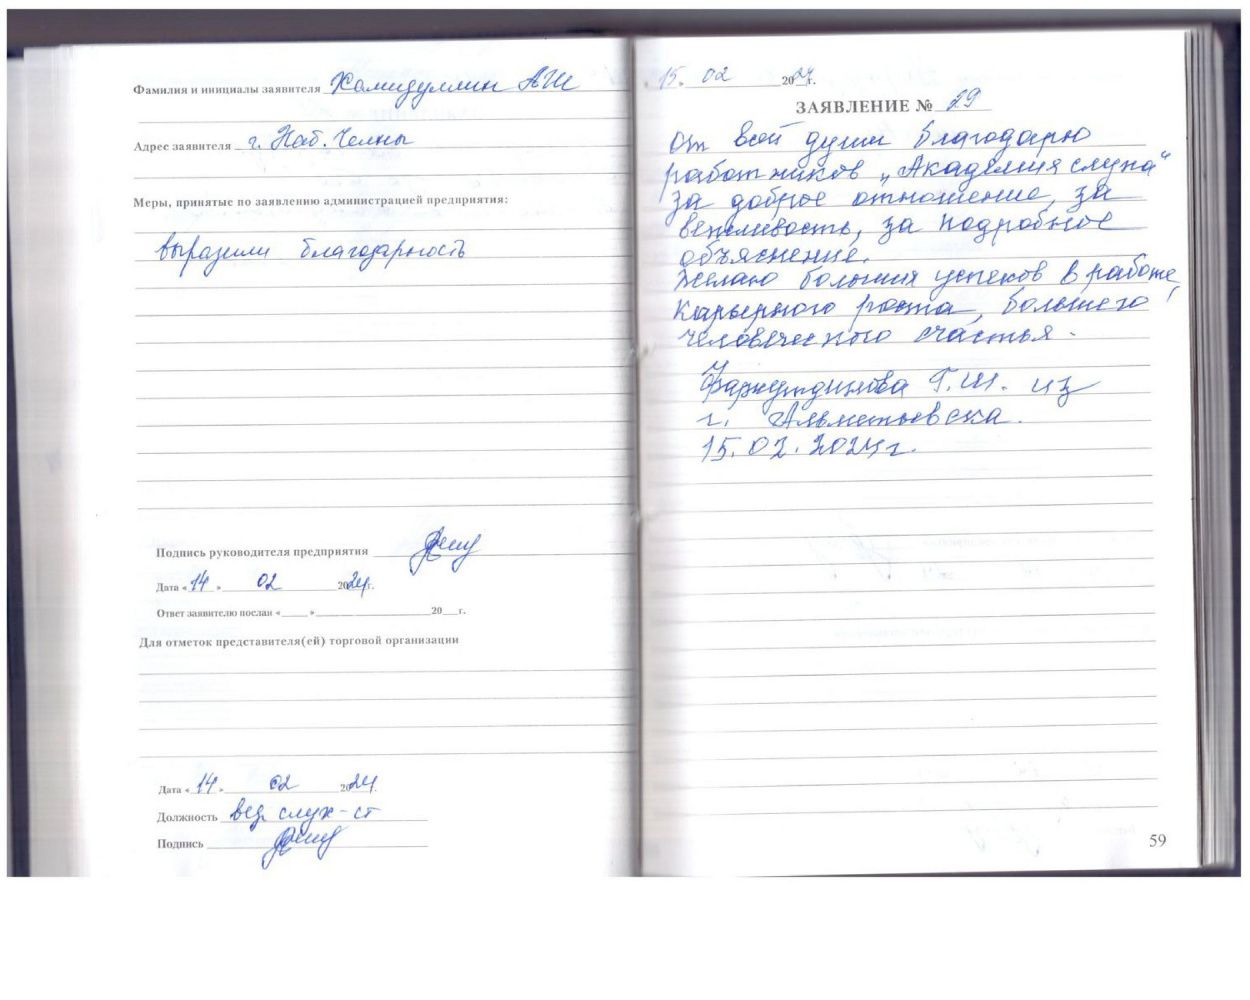 Фамилия и инициалы заявителя Хамидуллин АШ
Адрес заявителя г. Наб. Челны
Меры, принятые по заявлению администрацией предприятия:
выразили благодарность
Подпись руководителя предприятия
Дата «14» 02 2024г.
Ответ заявителю послан «____» ____ 20__г.
Для отметок представителя(ей) торговой организации
Дата «14» 02 2024г.
Должность вед. слух-ст
Подпись
15. 02 2024г.
ЗАЯВЛЕНИЕ № 29
От всей души благодарю
работников „Академия слуха“
за доброе отношение, за
вежливость, за подробное
объяснение.
Желаю больших успехов в работе,
карьерного роста, большего
человеческого счастья.
Фархутдинова Г.Ш. из
г. Альметьевска.
15.02.2024г.
59